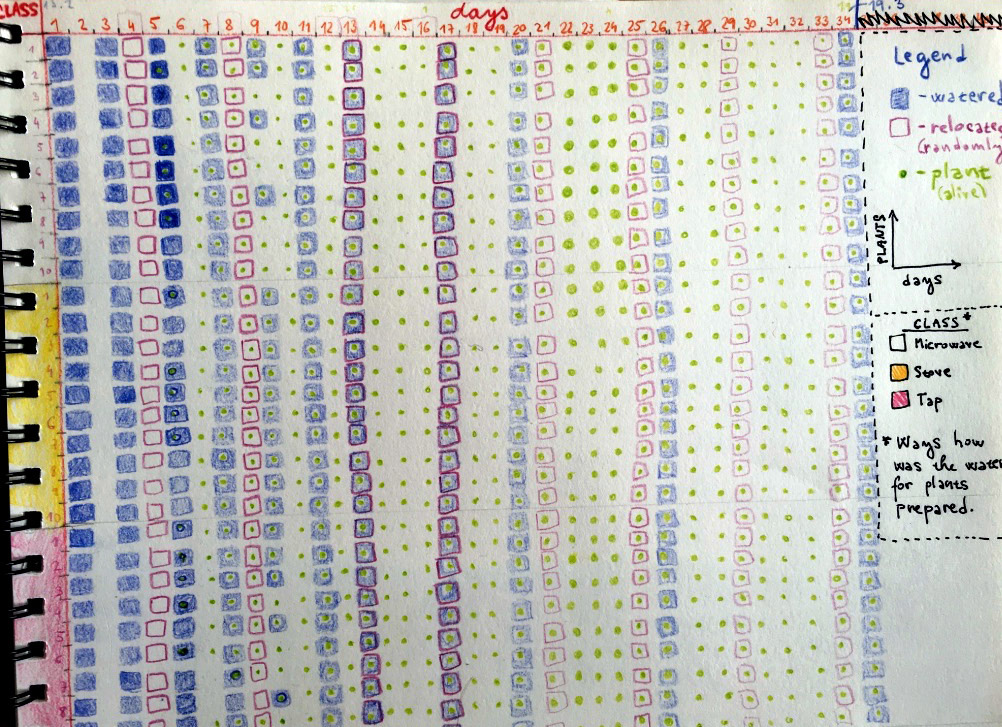 CLASS
days
19.3
1 2 3 4 5 6 7 8 9 10 11 12 13 14 15 16 17 18 19 20 21 22 23 24 25 26 27 28 29 30 31 32 33 34
Legend
- watered
- relocate
(randomly
- plant
(alive)
PLANTS
days
CLASS*
Microwave
Stove
Tap
* Ways how
was the water
for plants
prepared.